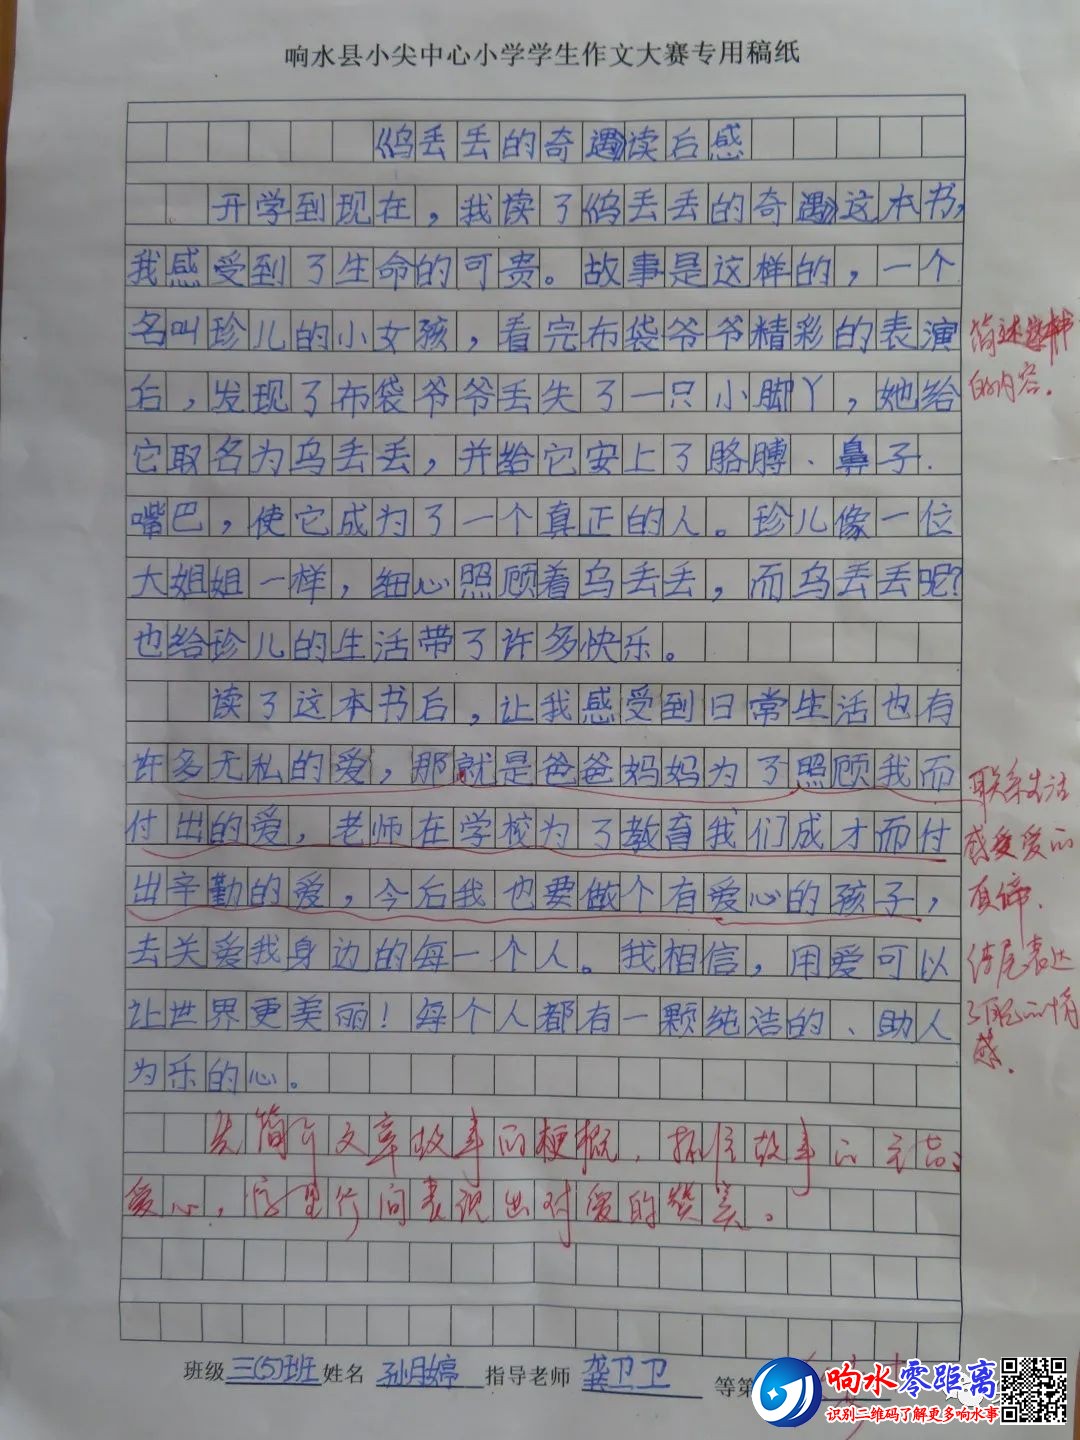 响水县小尖中心小学学生作文大赛专用稿纸
《乌丢丢的奇遇》读后感
开学到现在，我读了《乌丢丢的奇遇》这本书，
我感受到了生命的可贵。故事是这样的，一个
名叫珍儿的小女孩，看完布袋爷爷精彩的表演
后，发现了布袋爷爷丢失了一只小脚丫，她给
它取名为乌丢丢，并给它安上了胳膊、鼻子、
嘴巴，使它成为了一个真正的人。珍儿像一位
大姐姐一样，细心照顾着乌丢丢，而乌丢丢呢？
也给珍儿的生活带了许多快乐。
读了这本书后，让我感受到日常生活也有
许多无私的爱，那就是爸爸妈妈为了照顾我而
付出的爱，老师在学校为了教育我们成才而付
出辛勤的爱，今后我也要做个有爱心的孩子，
去关爱我身边的每一个人。我相信，用爱可以
让世界更美丽！每个人都有一颗纯洁的、助人
为乐的心。
简述这本书
的内容。
联系生活
感受爱的
真谛、
结尾表达
了自己的情
感。
先简介文章故事的梗概，抓住故事的主旨：
爱心，字里行间表现出对爱的赞美。
班级 三(5)班 姓名 孙月婷 指导老师 龚卫卫 等第
响水零距离
识别二维码了解更多响水事